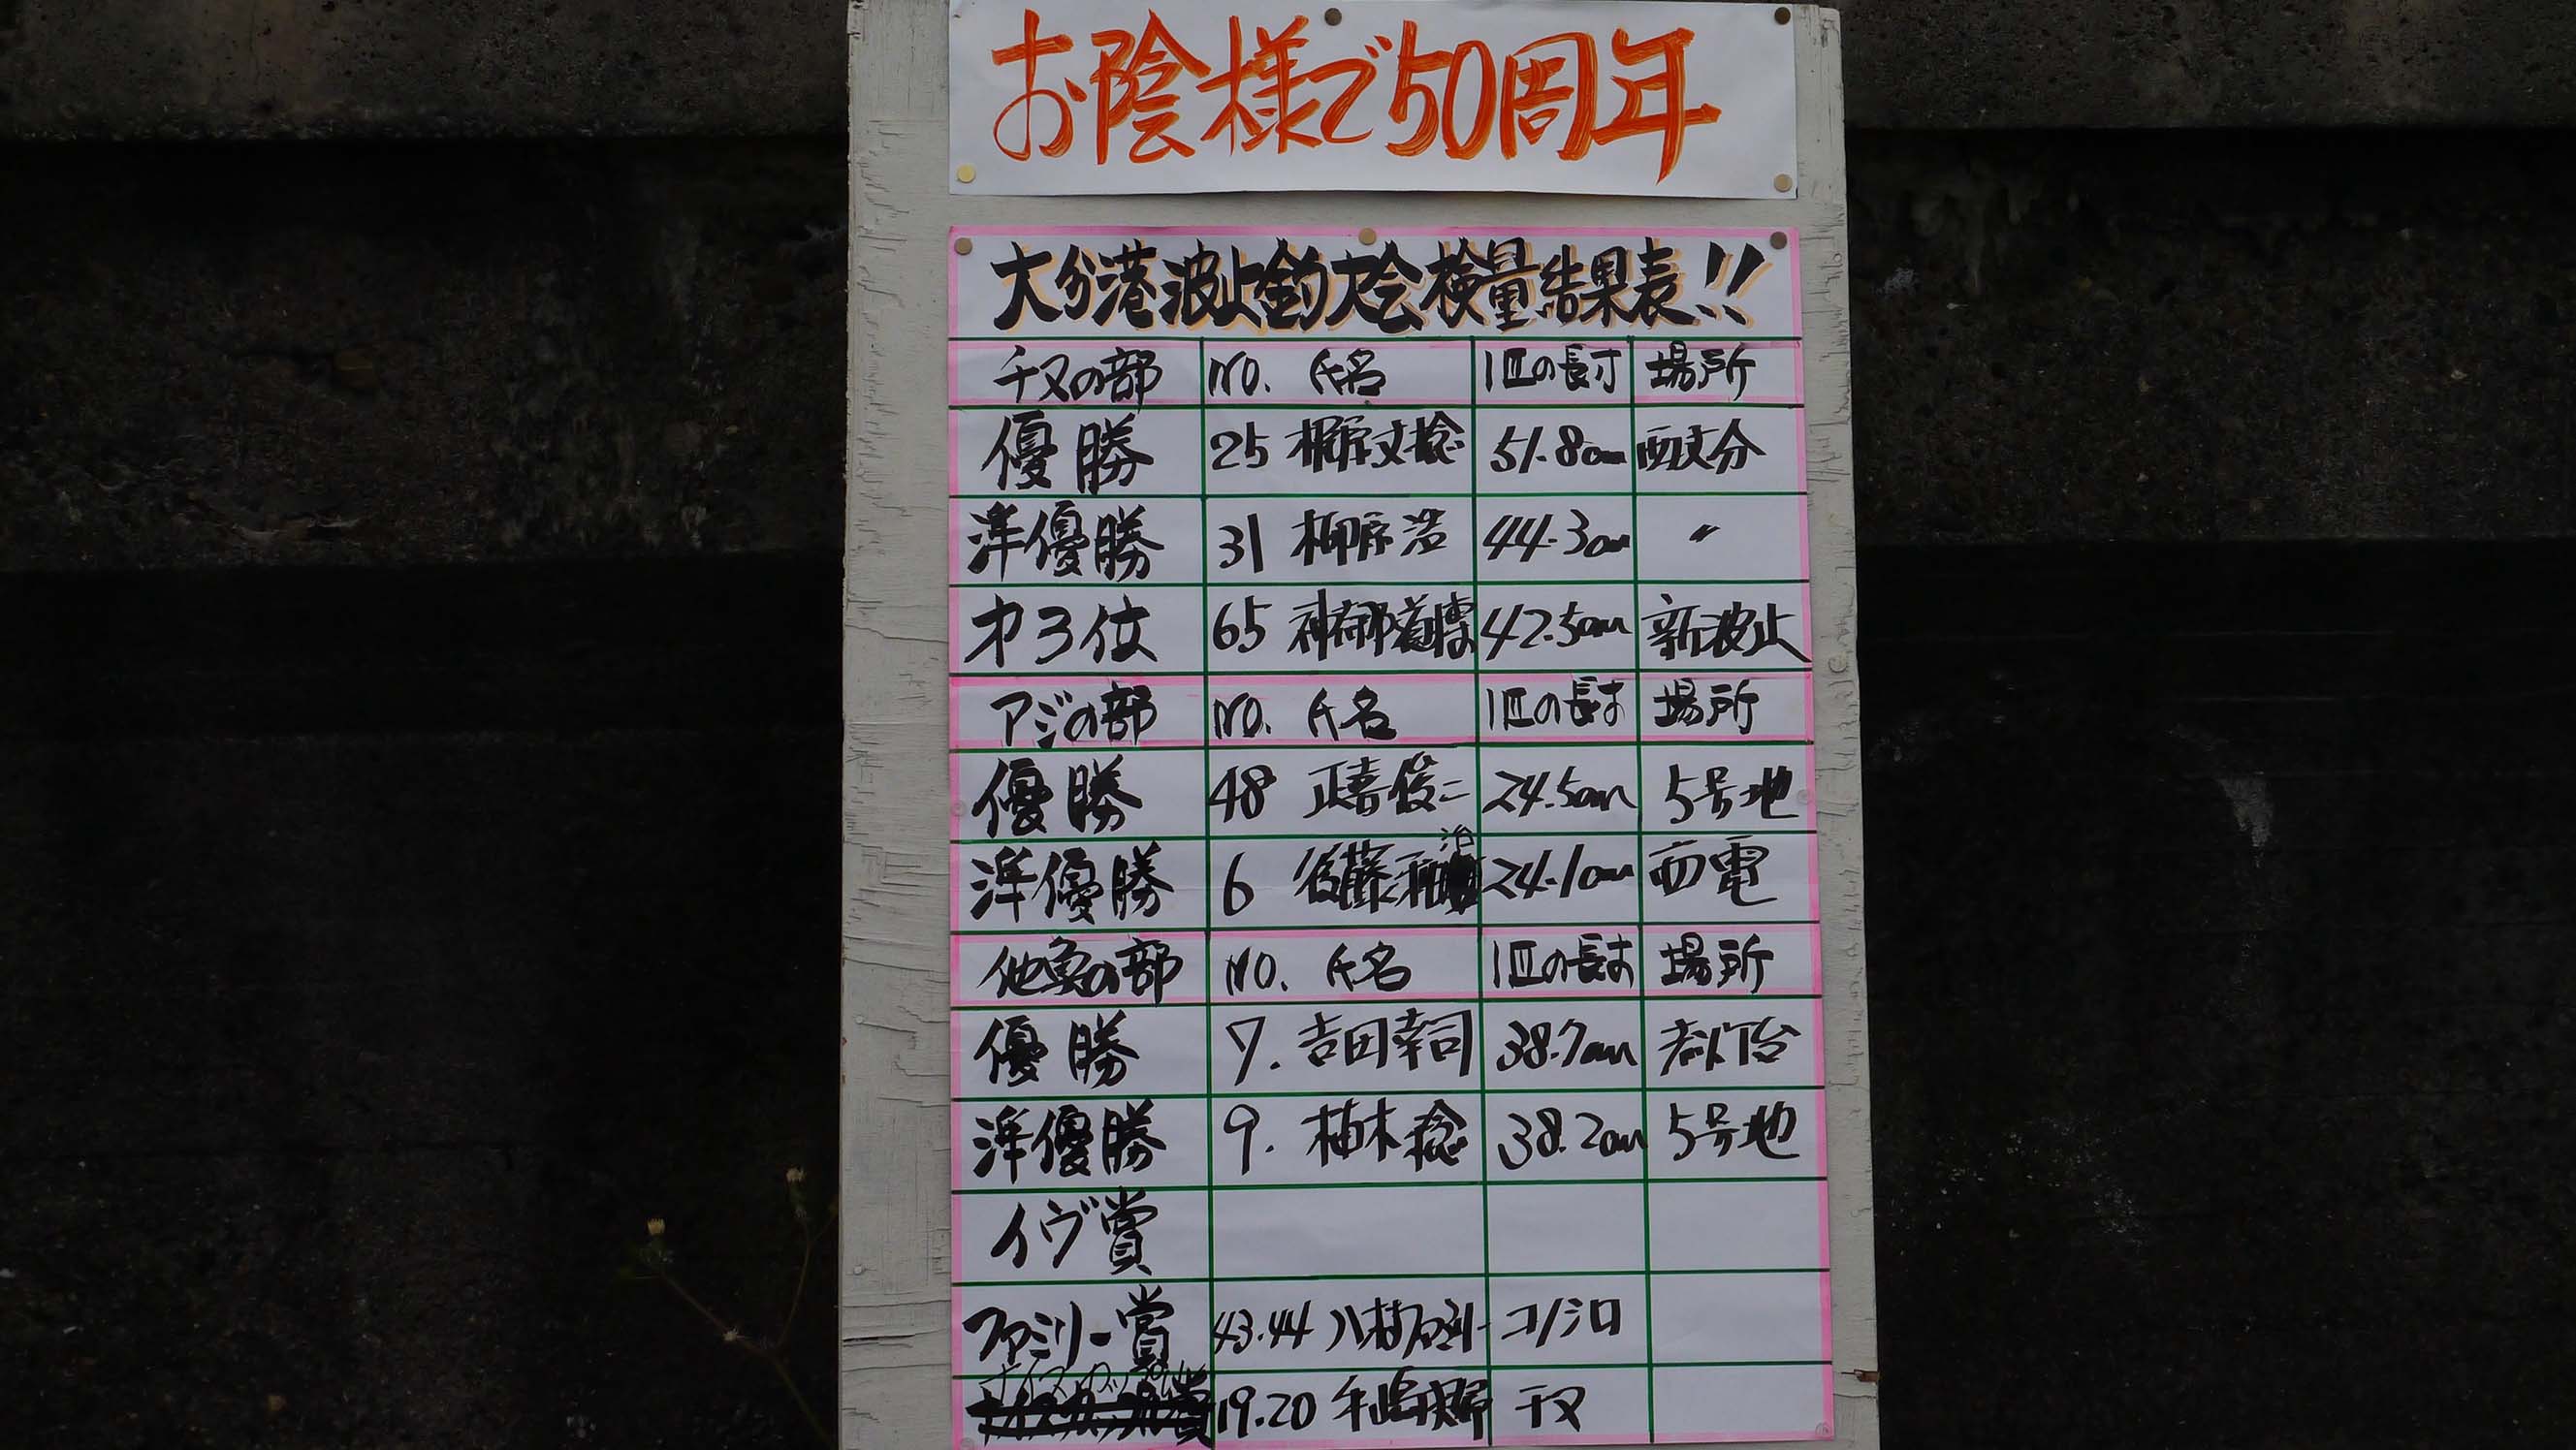 お陰様で50周年
大分港波止釣大会検量結果表!!
チヌの部 NO. 氏名 1匹の長寸 場所
優勝 25 51.8cm 西大分
準優勝 31 柳原浩 44.3cm 〃
才3位 65 42.5cm 新波止
アジの部 NO. 氏名 1匹の長さ 場所
優勝 48 正喜俊二 24.5cm 5号地
治
準優勝 6 後藤和 24.1cm 西電
他魚の部 NO. 氏名 1匹の長さ 場所
優勝 7. 吉田幸司 38.7cm 赤灯台
準優勝 9. 柚木稔 38.2cm 5号地
イヴ賞
ファミリー賞 43.44 八村ファミリー コノシロ
ナイスカップル
19.20 チヌ